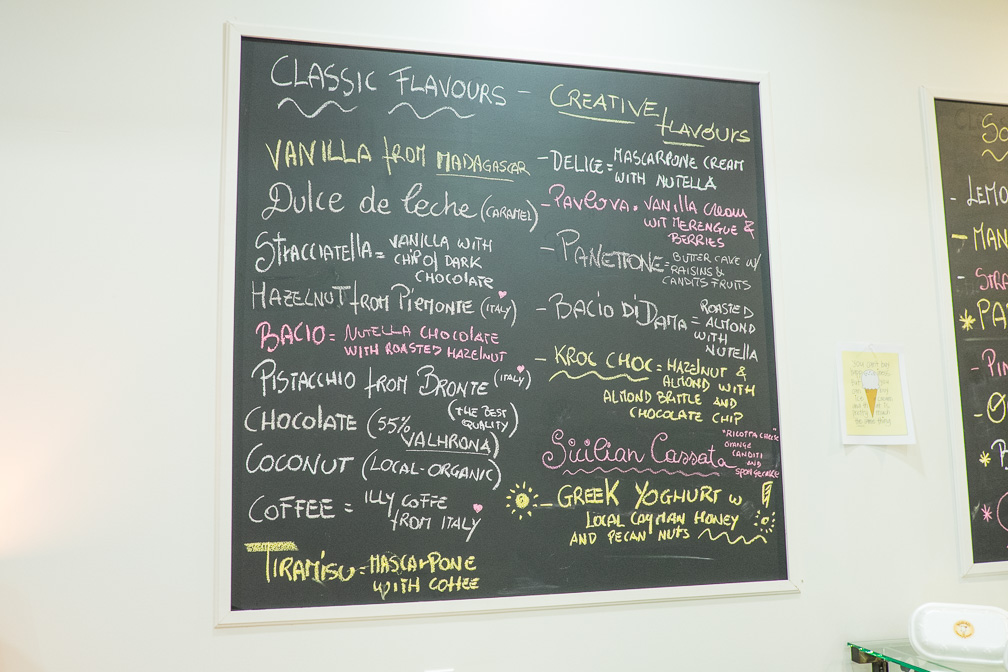 CLASSIC FLAVOURS -
VANILLA from MADAGASCAR
Dulce de leche (CARAMEL)
STRACCIATELLA = VANILLA WITH
CHIP of DARK
CHOCOLATE
HAZELNUT from PIEMONTE (ITALY)
BACIO = NUTELLA CHOCOLATE
WITH ROASTED HAZELNUT
PISTACCHIO from BRONTE (ITALY)
CHOCOLATE (55% VALHRONA) (THE BEST QUALITY)
COCONUT (LOCAL-ORGANIC)
COFFEE = ILLY COFFE
FROM ITALY
TIRAMISU = MASCARPONE
WITH COFFEE
CREATIVE
flavours
- DELICE = MASCARPONE CREAM
WITH NUTELLA
- PAVLOVA. VANILLA CREAM
WIT MERENGUE &
BERRIES
- PANETTONE = BUTTER CAKE W/
RAISINS &
CANDITS FRUITS
- BACIO DI DAMA = ROASTED
ALMOND
WITH
NUTELLA
- KROC CHOC = HAZELNUT &
ALMOND WITH
ALMOND BRITTLE AND
CHOCOLATE CHIP
Sicilian Cassata "RICOTTA CHEESE"
ORANGE
CANDITI
AND
SPONGECAKE
- GREEK YOGHURT W
LOCAL CAYMAN HONEY
AND PECAN NUTS
SO
- LEMO
- MAN
- STRA
* PA
- PIN